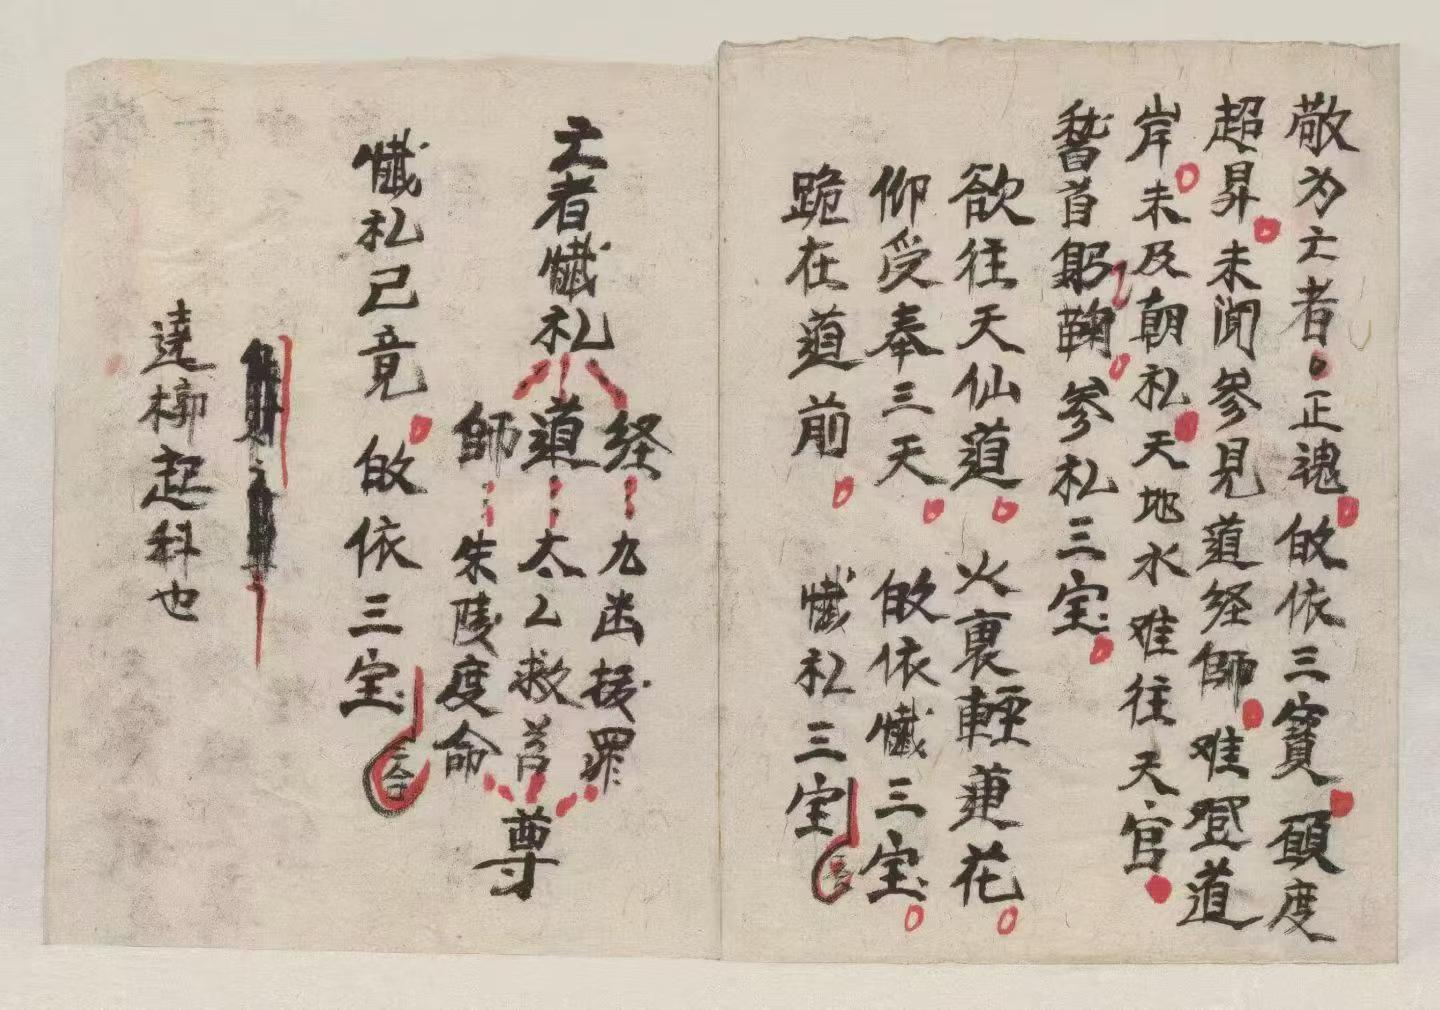 敬为亡者正魂皈依三寳願度
超昇未闻参見道经師难登道
岸未及朝礼天地水难往天官
稽首躬鞠参礼三宝
欲往天仙道火裏輕莲花
仰受奉三天皈依懺三宝
跪在道前懺礼三宝
亡者懺礼
经九幽拔罪
道太乙救苦
師朱陵度命
尊
懺礼已竟皈依三宝
達梆起科也